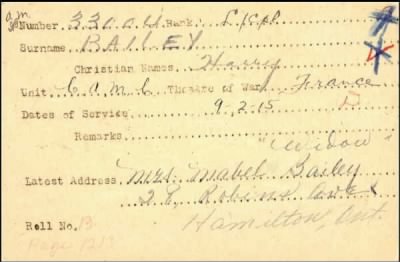 a.m.
Number 33004 Rank L/Cpl
Surname BAILEY
Christian Names Harry
Unit C A M C Theatre of War France
Dates of Service 9-2-15 D
Remarks
"Widow"
Latest Address Mrs. Mabel Bailey
Robins Ave
Roll No. B Hamilton, Ont.
Page 1213